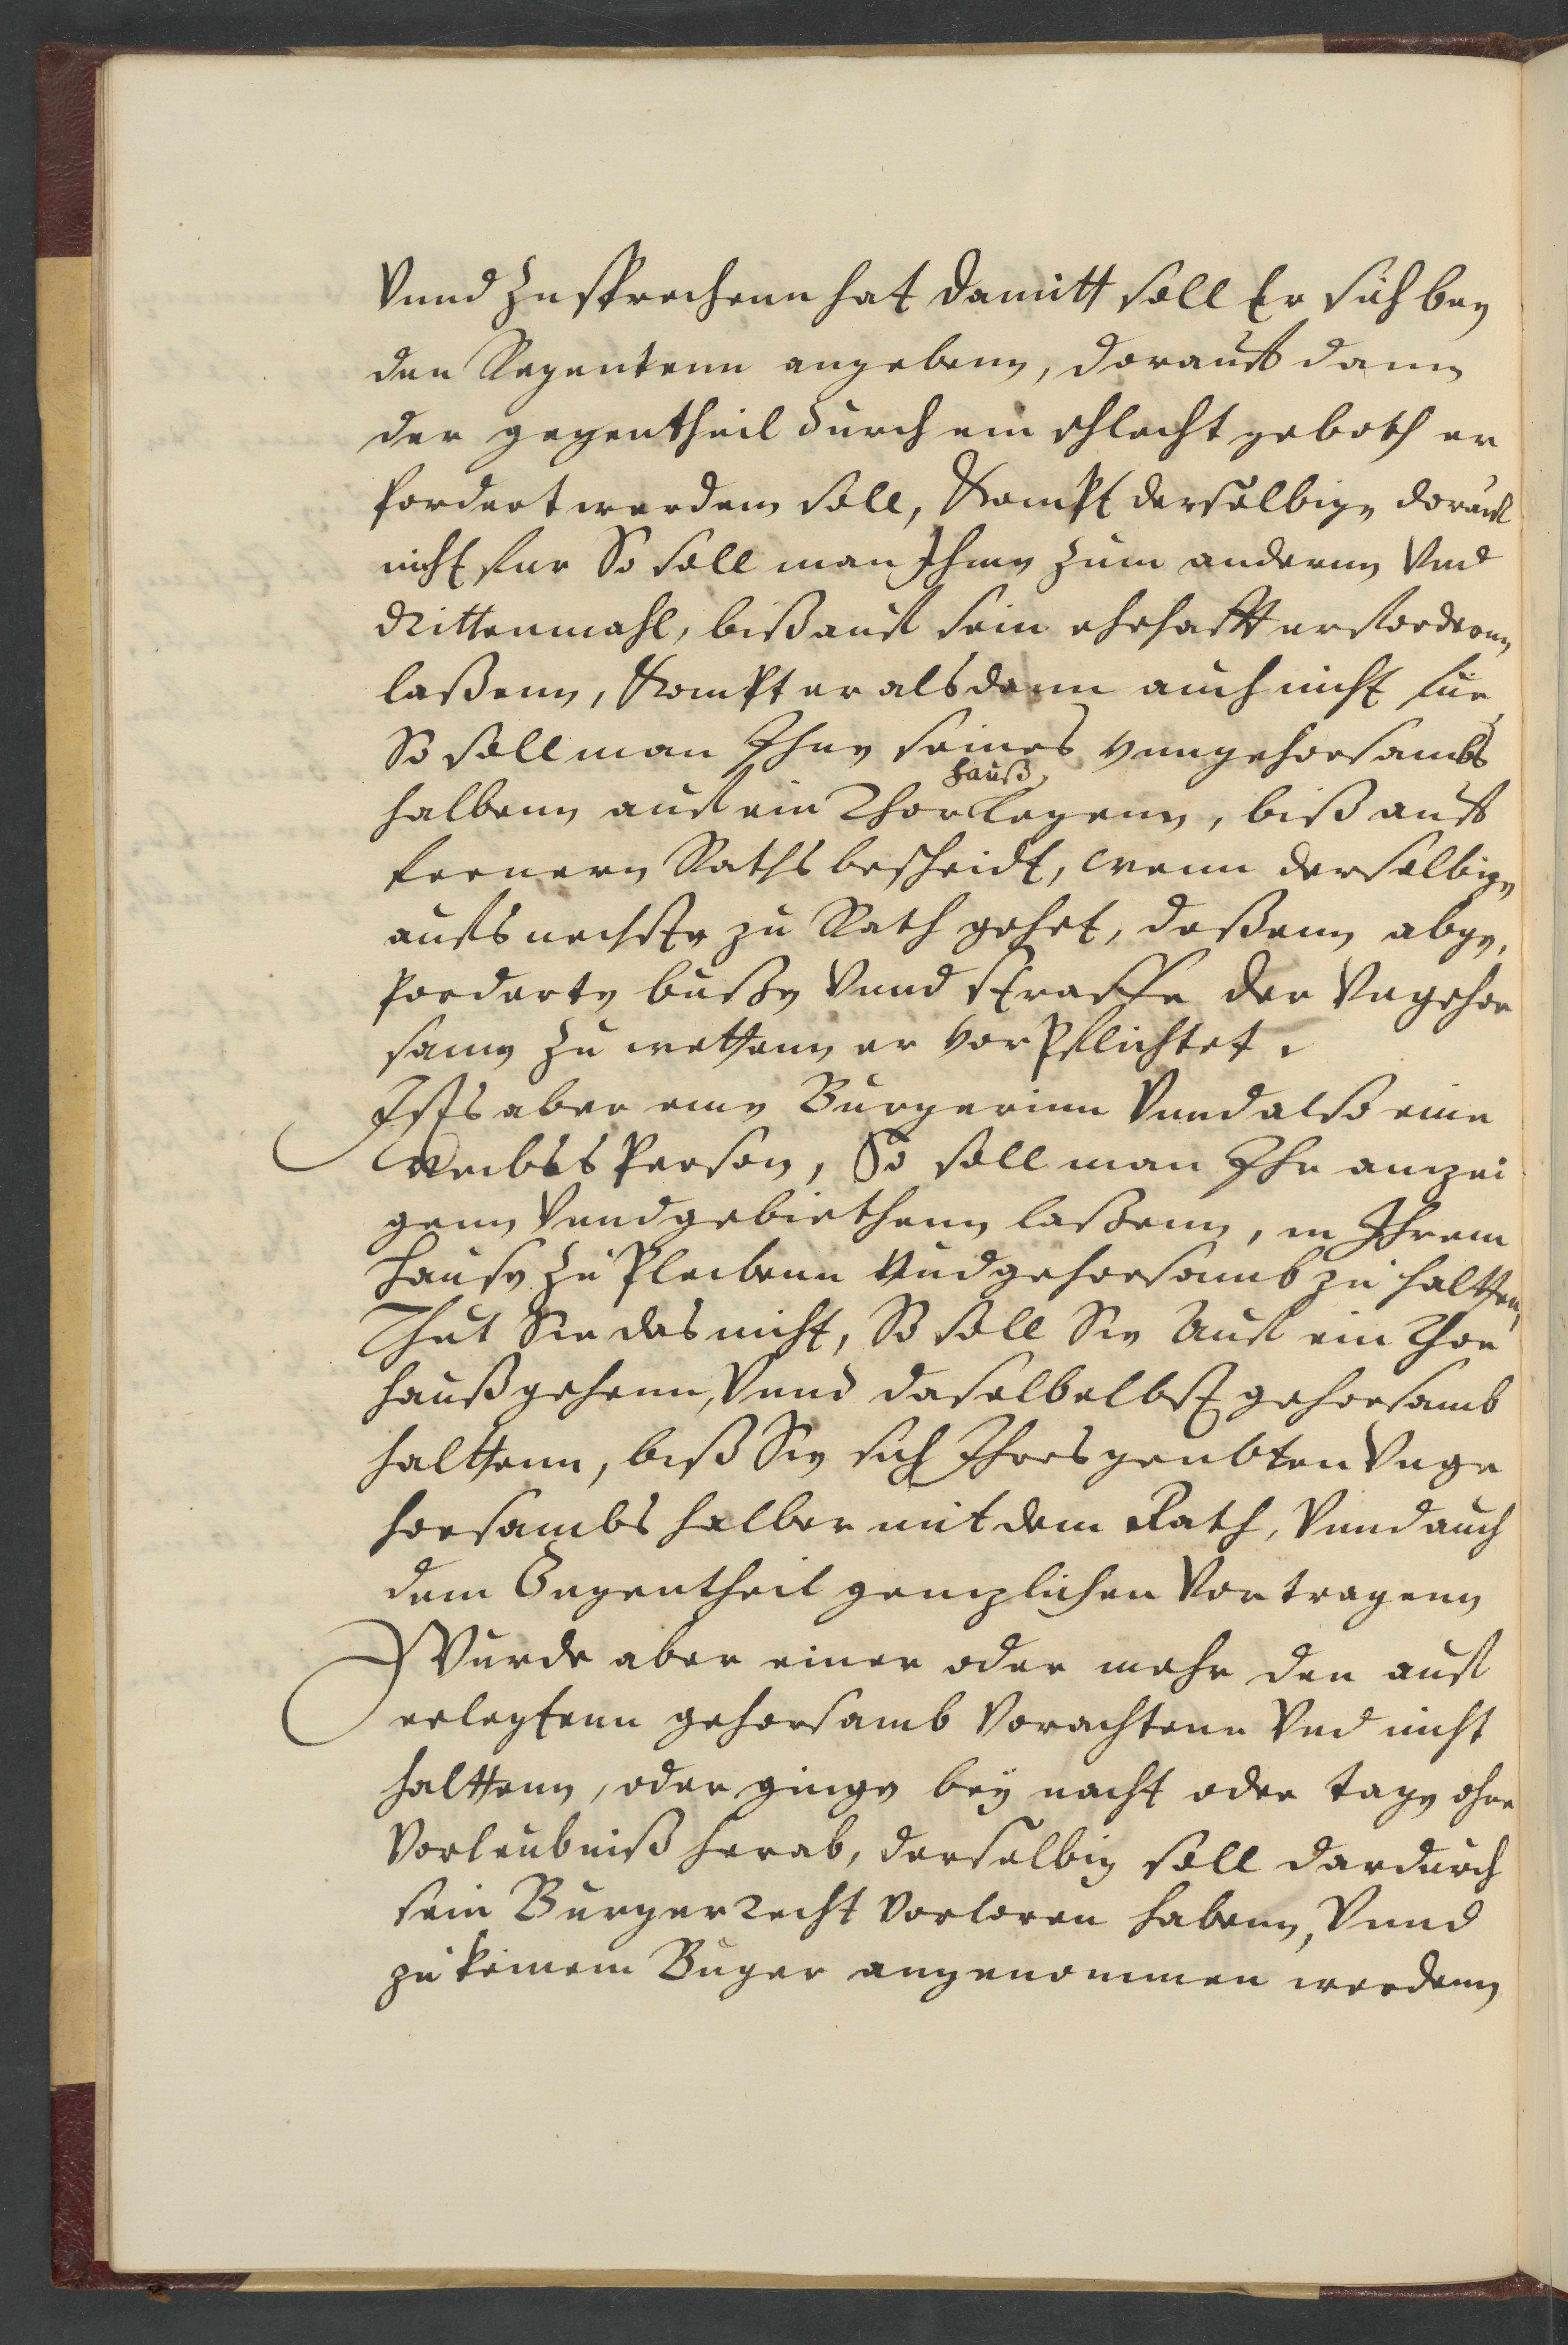 Vnnd Zusprechenn hat damitt soll Er sich bey
den Regentenn angebenn, dorauff dann
der gegentheil durch ein schlecht geboth er
fordert werdenn soll, Kompt derselbige dorauf
nicht fur So soll man Ihme zum andernn Vnd
drittenmahl, biß auf sein ehehafft erfordernn
laßenn, Kompt er alsdann auch nicht für
So soll man Ihne seines vnngehorsambs
halbenn auf ein Thor hauß legenn, biß auff
fernern Raths bescheidt, wenn derselbige
aufs nechste zu Rath gehet, deßenn abge,
forderte buße Vnnd straffe der Vngehor
same Zu wettenn er vorpflichtet.
Ists aber eine Burgerinn Vnnd also eine
Weibes Person, So soll man Ihr anzei
genn Vnnd gebiethenn laßenn, in Ihrem
Hause Zu Pleibenn Vnd gehorsamb zu haltten,
Thut Sie das nicht, So soll Sie Auf ein Thor
hauß gehenn, Vnnd daselbelbst gehorsamb
halttenn, biß Sie sich Ihres geubten Vnge
horsambs halber mit dem Rath, Vnnd auch
dem Gegentheil genzlichen Vortragenn
Wurde aber einer oder mehr den auff
erlegtenn gehorsamb Vorachtenn Vnd nicht
halttenn, oder ginge bey nacht oder tage ohne
Vorleubniß herab, derselbig soll dardurch
sein Burgerrecht Vorloren habenn, Vnnd
zu keinem Buger angenommen werdenn